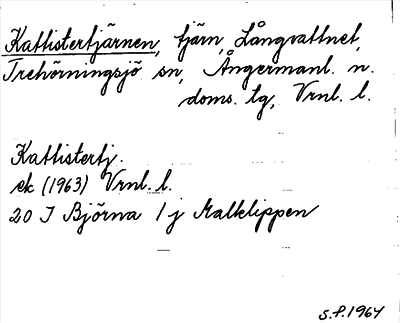 Kattistertjärnen, tjärn, Långvattnet,
Trehörningsjö sn, Ångermanl. n.
doms. tg, Vrnl. l.
Kattistertj.
ek (1963) Vrnl. l.
20 I Björna 1 j Malklippen
S.P. 1964